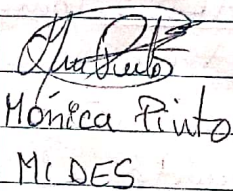 Mónica Pinto
MIDES